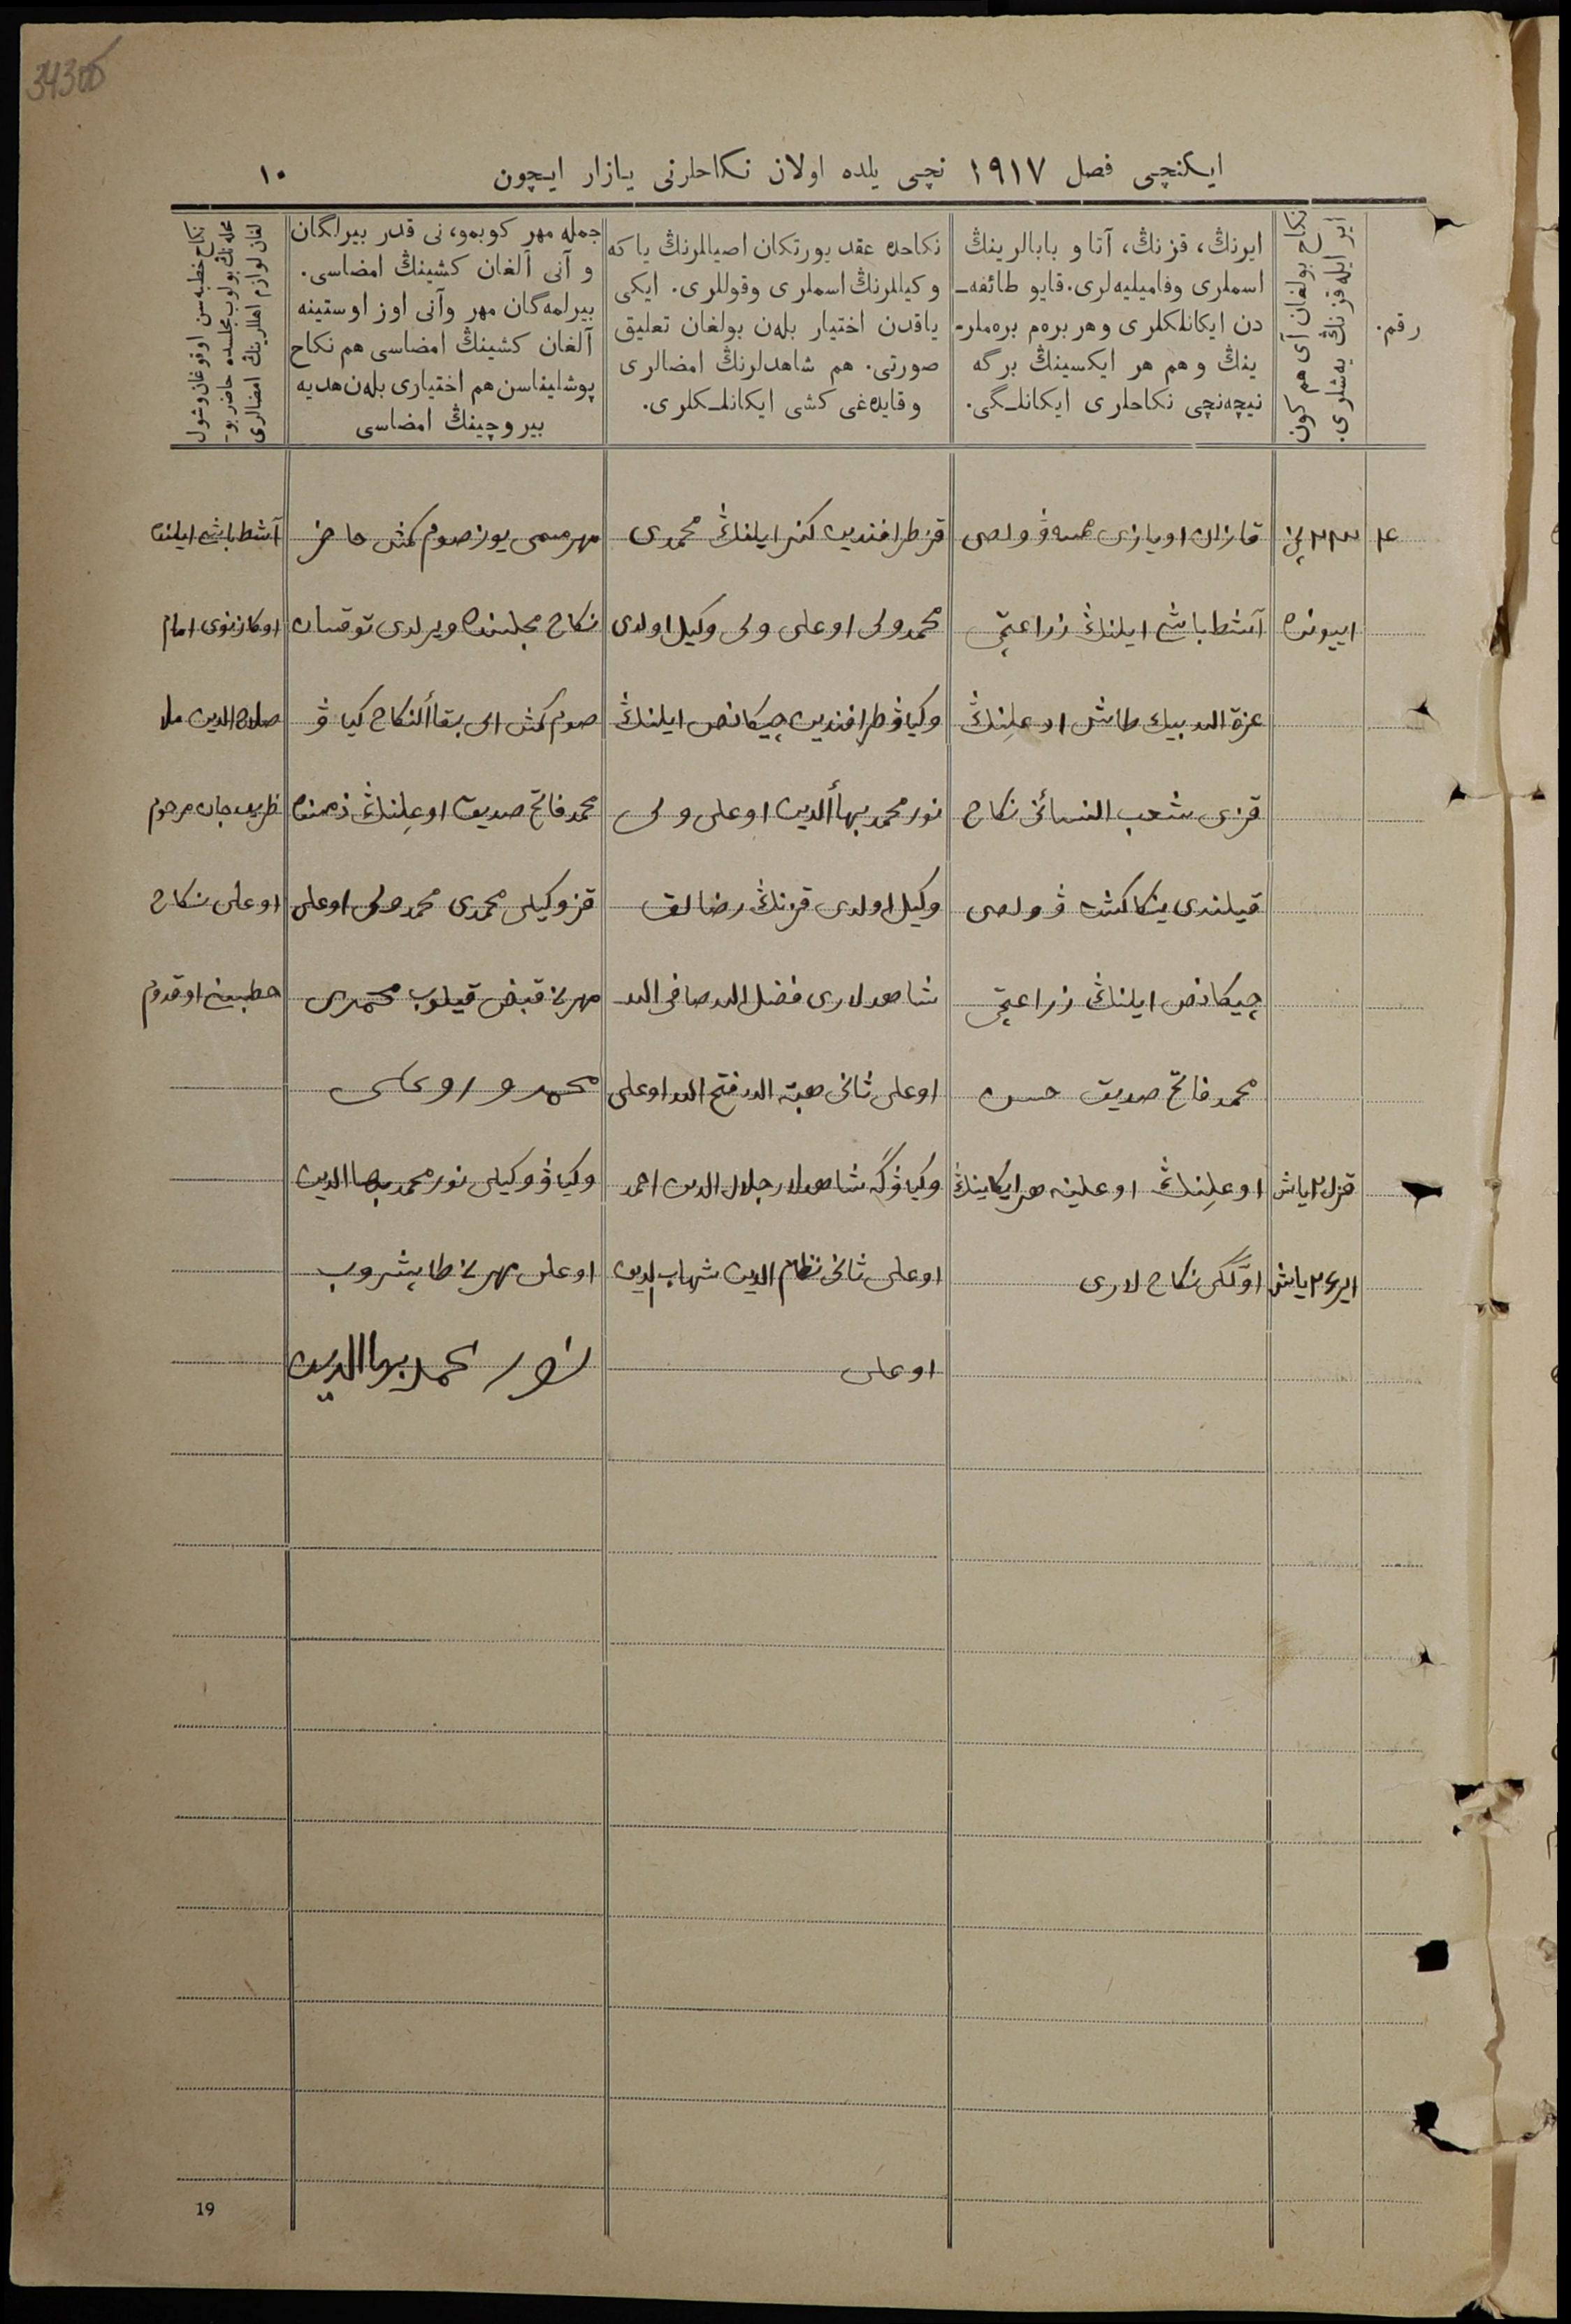 343об
ایکنچی فصل ۱۹۱۷ نچی یلده اولان نکاحلرنی یازار ایچون
۱۰
رقم.
نکاح بولغان آی هم کون
ایر ایله قزنڭ یەشلری.
ایرنڭ، قزنڭ، آتا و بابالرینڭ
اسملری وفامیلیەلری. قایو طائفه‌ـ
دن ایکانلکلری وهر برەم برەملر-
ینڭ وهم هر ایکسینڭ برگه
نیچەنچی نکاحلری ایکانلـگی.
نکاحده عقد یورتکان اصیاللرنڭ یا که
وکیللرنڭ اسملری وقوللری. ایکی
یاقدن اختیار بلەن بولغان تعلیق
صورتی. هم شاهدلرنڭ امضالری
وقایدەغی کشی ایکانلـکلری.
جمله مهر کوبمو، نی قدر بیرلگان
و آنی آلغان کشینڭ امضاسی.
بیرلمەگان مهر وآنی اوز اوستینه
آلغان کشینڭ امضاسی هم نکاح
پوشلیناسن هم اختیاری بلەن هدیه
بیروچینڭ امضاسی
نکاح خطبەسن اوقوغان وشول
محلەنڭ بولوب مجلسده حاضر بو-
لغان لوازم اهللرینڭ امضالری
۴
۲۳ نچی
اییونده
قزل ۲۱ یاش
ایر ۲۴ یاش
قازان اویازی ولصی
آشطباش ایلنڭ زراعتچی
عزة الله بیك طاش اوعلینڭ
قزی النسائنی نکاح
قیلندی ینکاکشت ۋولصی
چیکانص ایلنڭ زراعتچی
محمد فاتح صدیق حسن
اوعلینڭ اوعلینه هر ایکاینڭ
اوّلگی نکاح لاری
قز طرافندین کنر ایلنڭ محمدی
محمدولی اوعلی ولی وکیل اولدی
وکیاۋ طرافندین چیکانص ایلنڭ
نورمحمد بهاٴالدین اوعلی ولی
وکیل اولدی قزنڭ رضالق
شاهدلاری فضل الله صافی الله
اوعلی ثانی هبة الله فتح الله اوعلی
وکیاۋگه شاهدلار جلال الدین احمد
اوعلی ثانی نظام الدین شهاب الدین
اوعلی
مهر مسمی یوز صوم کمش حاضر
نکاح مجلسنده ویرلدی توقسان
صوم کمش الی بقاٴالنکاح کیاۋ
محمد فاتح صدیق اوعلینڭ ذمسنده
قز وکیلی محمدی محمدولی اوعلی
مهرنی قبض قیلوب محمدی
وکیاۋ وکیلی نورمحمد بهاالدین
اوعلی مهرنی طابشروب
نور محمد بهاالدین
آشطباش ایلنده
اوکازنوی امام
صلاح الدین ملا
ظریف جان مرحوم
اوعلی نکاح
خطبەسنی اوقدوم
19